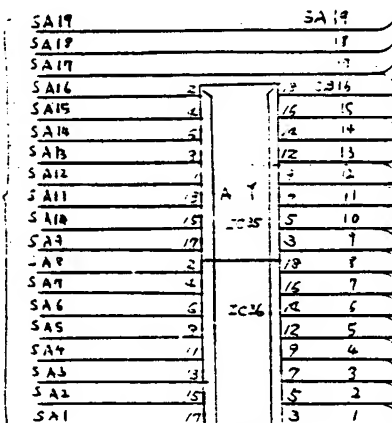 SA19 SA19
SA18 18
SA17 17
SA16 2 18 16
SA15 4 16 15
SA14 6 14 14
SA13 12 13
SA12 12
SA11 13 11
SA10 15 IC35 5 10
SA9 17 3 9
SA8 2 18 8
SA7 4 16 7
SA6 6 IC36 14 6
SA5 12 5
SA4 11 9 4
SA3 13 7 3
SA2 15 5 2
SA1 17 3 1